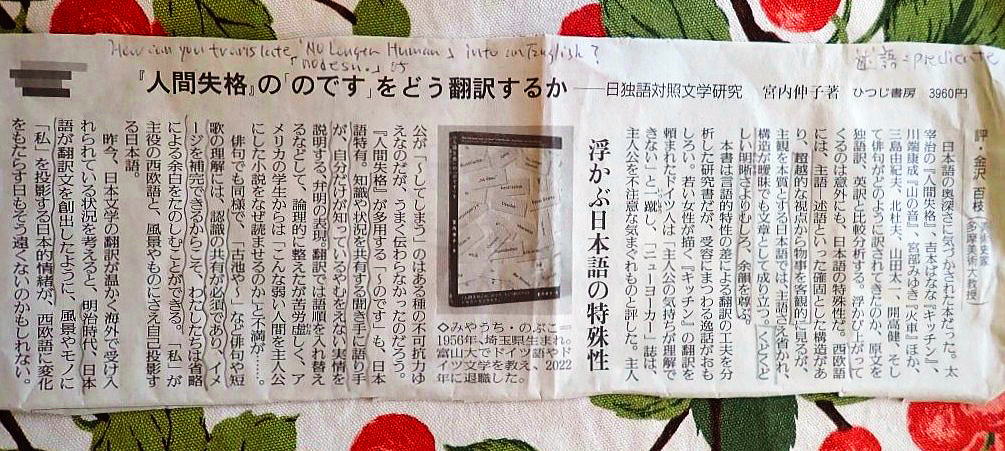 How can you translate 'No Longer Human's into an English?
「nodesu.」of
述語=predicate
『人間失格』の「のです」をどう翻訳するか──日独語対照文学研究　宮内伸子著　ひつじ書房　3960円
評・金沢 百枝
(多摩美術大教授)
浮かぶ日本語の特殊性
日本語の奥深さに気づかされた本だった。太
宰治の『人間失格』、吉本ばなな『キッチン』、
川端康成『山の音』、宮部みゆき『火車』ほか、
三島由紀夫、北杜夫、山田太一、開高健、そし
て俳句がどのように訳されてきたのか、原文を
独語訳、英訳と比較分析する。浮かび上がって
くるのは意外にも、日本語の特殊性だ。西欧語
には、主語―述語といった堅固とした構造があ
り、超越的な視点から物事を客観的に見るが、
主観を本質とする日本語では、主語さえ省かれ、
構造が曖昧でも文章として成り立つ。くどくど
しい明晰さよりもむしろ、余韻を尊ぶ。
本書は言語的心性の差による翻訳の工夫を分
析した研究書だが、受容にまつわる逸話がおも
しろい。若い女性が描く『キッチン』の翻訳を
頼まれたドイツ人は「主人公の気持ちが理解で
きない」と一蹴し、「ニューヨーカー」誌は、
主人公を不注意な気まぐれものと評した。主人
公が「〜してしまう」のはある種の不可抗力ゆ
えなのだが、うまく伝わらなかったのだろう。
『人間失格』が多用する「〜のです」も、日本
語特有。知識や状況を共有する聞き手に語り手
が、自分だけが知っているやむをえない実情を
説明する、弁明の表現。翻訳では語順を入れ替え
るなどして、論理的に整えたが苦労虚しく、ア
メリカの学生からは「こんな弱い人間を主人公
にした小説をなぜ読ませるのか」と不満が……。
俳句でも同様で、「古池や〜」など俳句や短
歌の理解には、認識の共有が必須であり、イメ
ージを補完できるからこそ、わたしたちは省略
による余白をたのしむことができる。「私」が
主役の西欧語と、風景やものにさえ自己投影す
る日本語。
昨今、日本文学の翻訳が温かく海外で受け入
れられている状況を考えると、明治時代、日本
語が翻訳文を創出したように、風景やモノに
「私」を投影する日本的情緒が、西欧語に変化
をもたらす日もそう遠くないのかもしれない。
◇みやうち・のぶこ＝
1956年、埼玉県生まれ。
富山大でドイツ語やド
イツ文学を教え、2022
年に退職した。